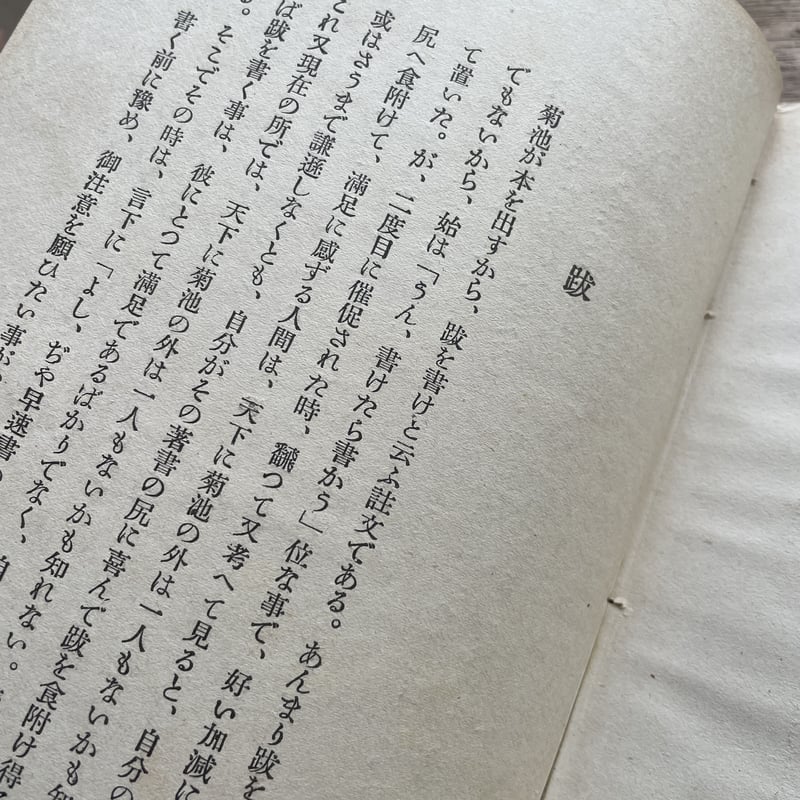 跋
菊池が本を出すから、跋を書けと云ふ註文である。あんまり跋を
でもないから、始は「うん、書けたら書かう」位な事で、好い加減に
て置いた。が、二度目に催促された時、飜つて又考へて見ると、自分の
尻へ食附けて、滿足に感ずる人間は、天下に菊池の外は一人もないかも知
或はさうまで謙遜しなくとも、自分がその著書の尻に喜んで跋を食附け得
れ又現在の所では、天下に菊池の外は一人もないかも知れない。
ば跋を書く事は、彼にとつて滿足であるばかりでなく、自
る。そこでその時は、言下に「よし、ぢや早速書
書く前に豫め、御注意を願ひたい事が